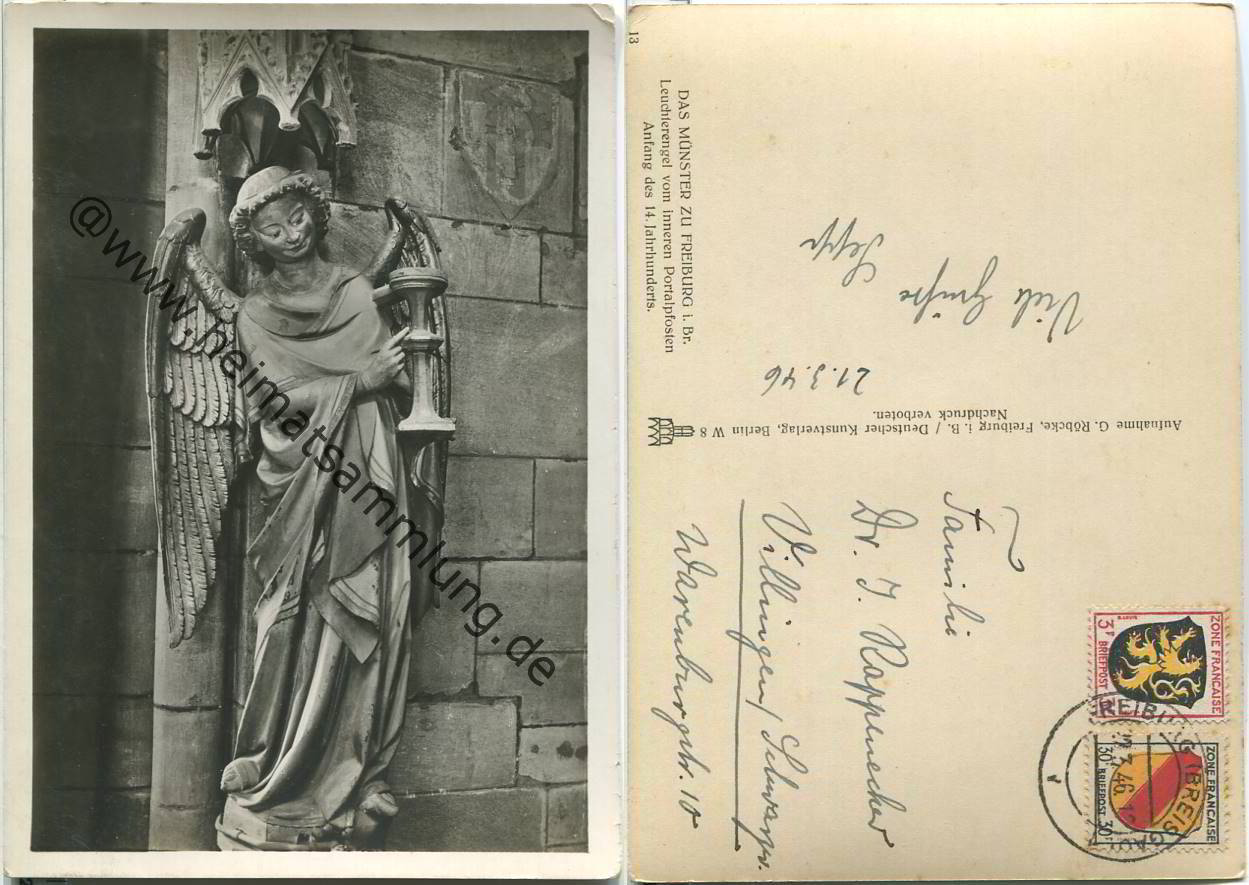 @www.heimatsammlung.de
13
DAS MÜNSTER ZU FREIBURG i. Br.
Leuchterengel vom inneren Portalpfosten
Anfang des 14. Jahrhunderts.
21.3.46
Viele Grüße
Sepp
Aufnahme G. Röbcke, Freiburg i. B. / Deutscher Kunstverlag, Berlin W 8
Nachdruck verboten.
Familie
Dr. J. Rappenecker
Villingen/Schwarzw.
Warenburgstr. 10
ZONE FRANÇAISE
3F BRIEFPOST 3F
ZONE FRANÇAISE
30F BRIEFPOST 30F
FREIBURG (BREISGAU)
3.46